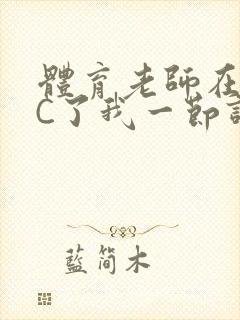 體育老師在
C了我一節
藍简木